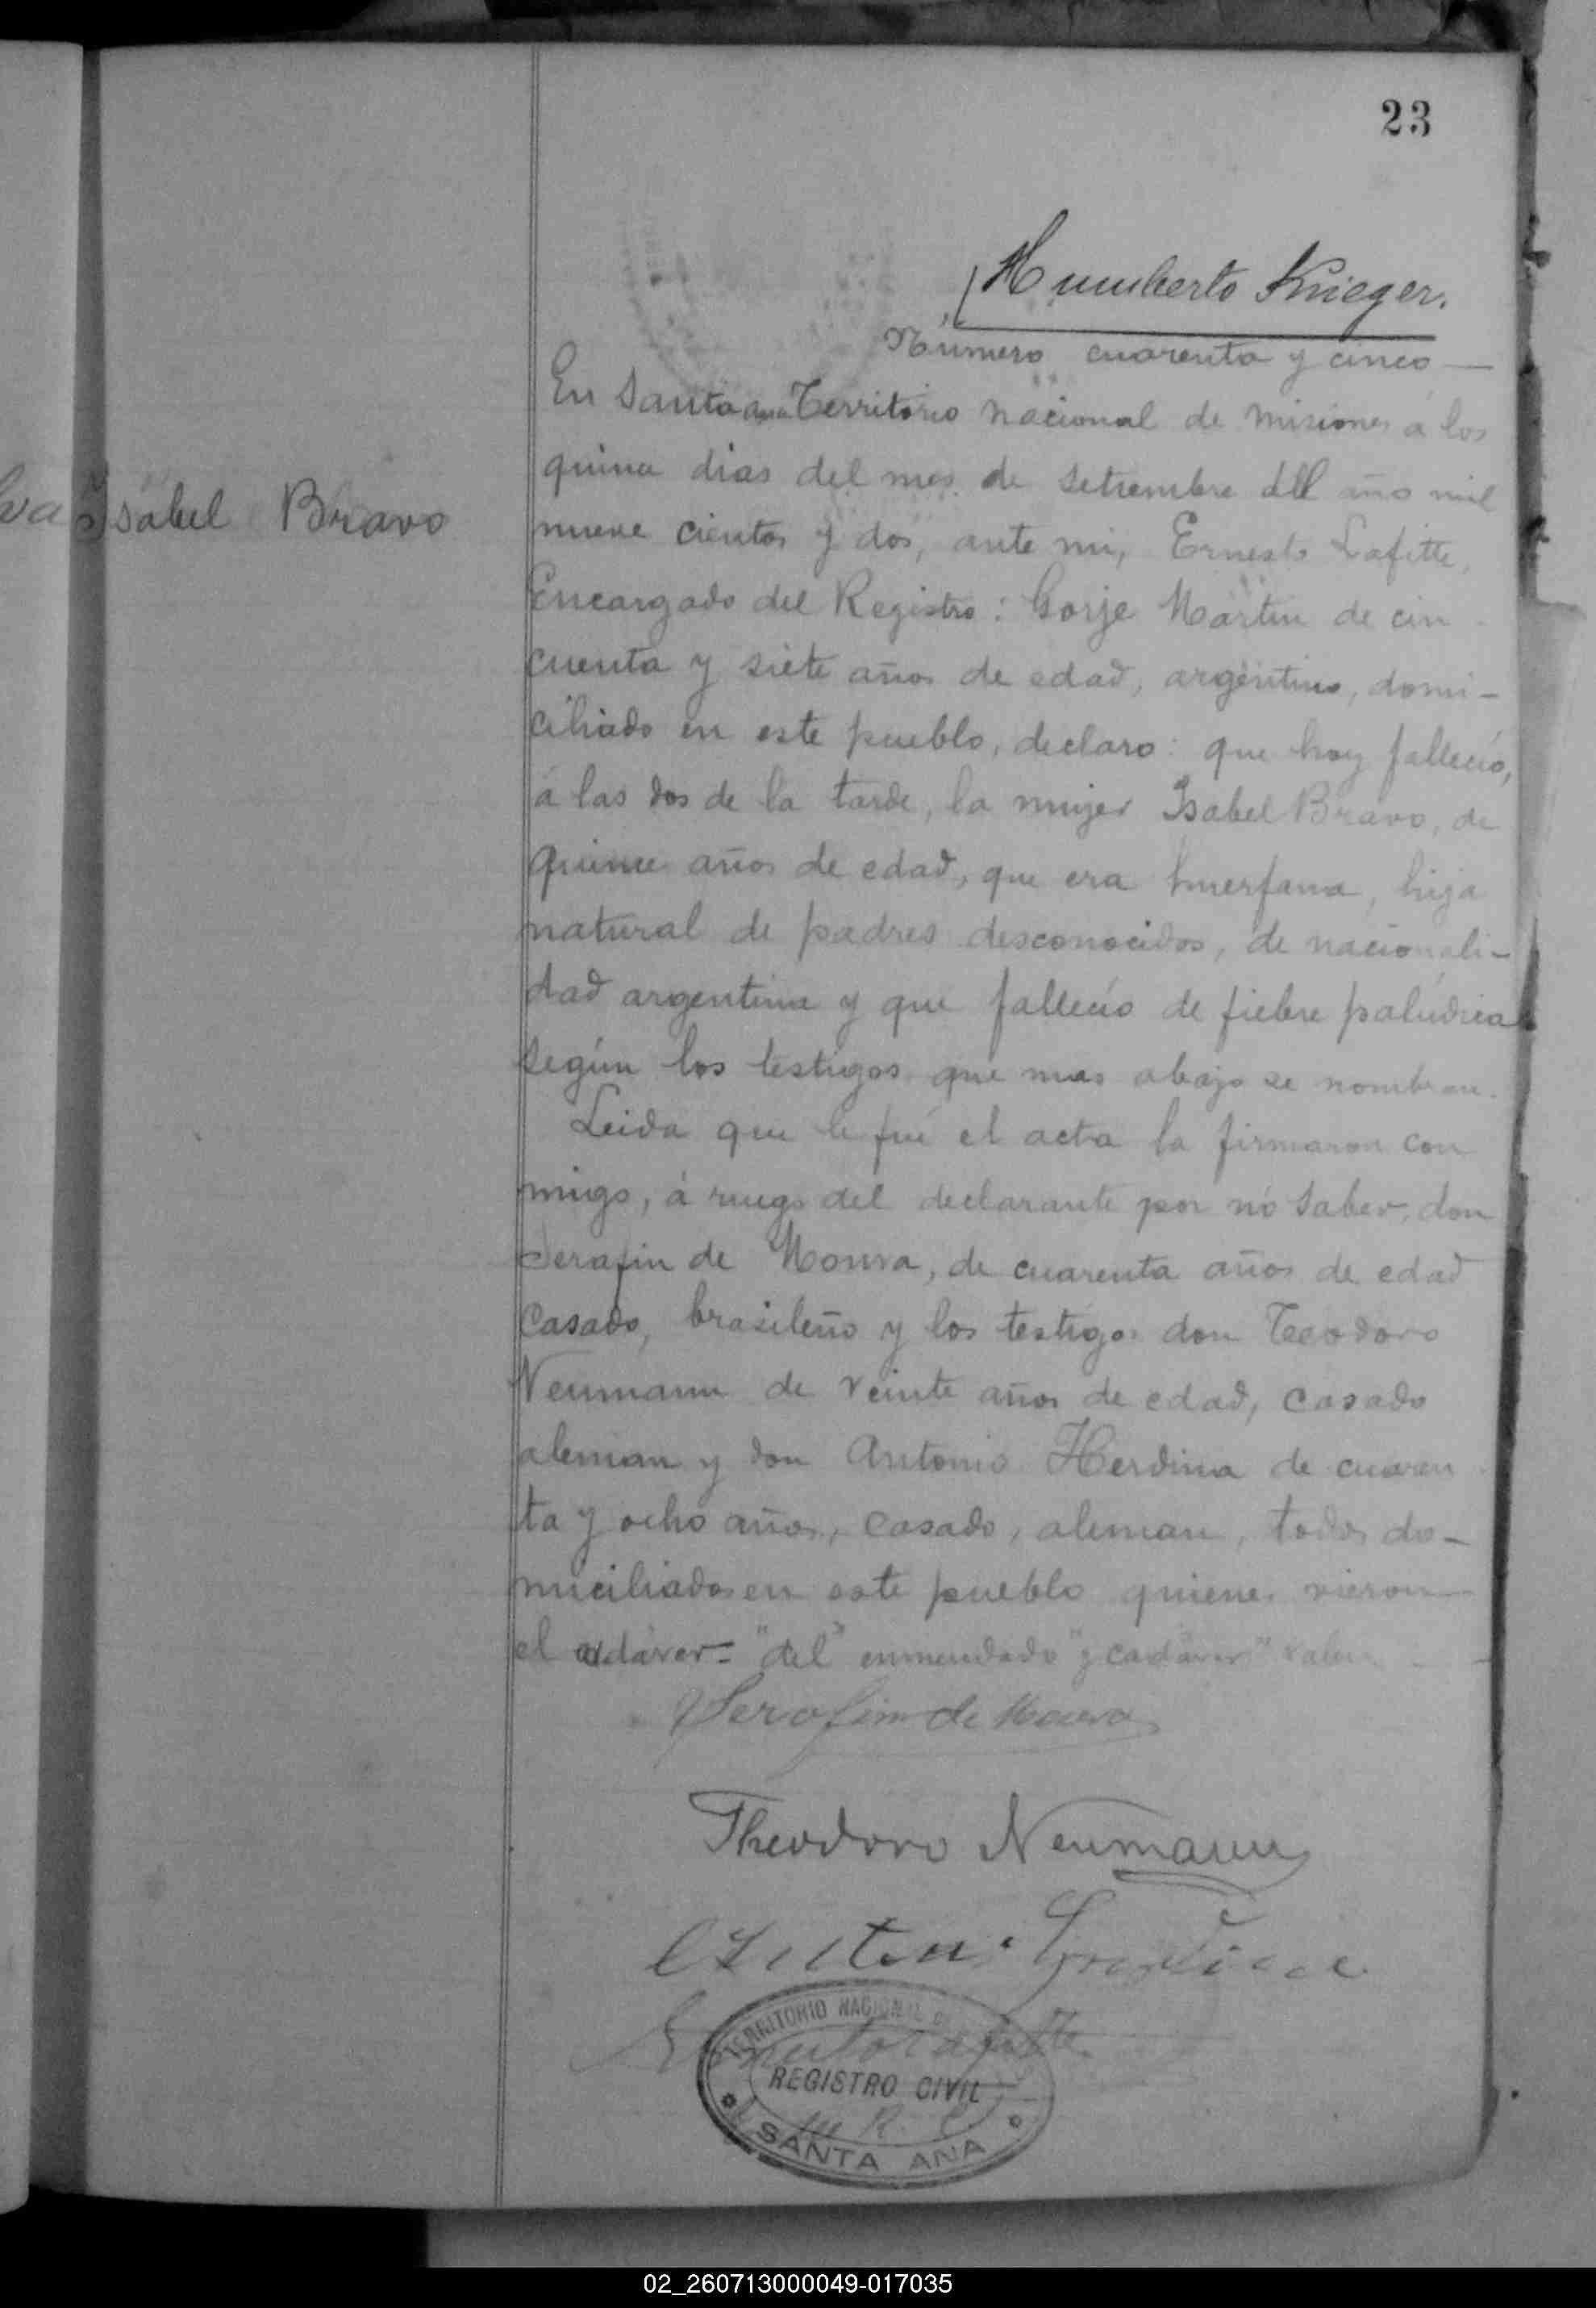 23
Humberto Krieger.
Número cuarenta y cinco
En Santa Ana Territorio nacional de misiones á los
quince dias del mes de setiembre del año mil
nueve cientos y dos, ante mi, Ernesto Lafitte,
Isabel Bravo
Encargado del Registro: Gorje Martin de cin
cuenta y siete años de edad, argentino, domi-
ciliado en este pueblo, declaro: que hoy fallecío,
á las dos de la tarde, la mujer Isabel Bravo, de
quince años de edad, que era huerfana, hija
natural de padres desconocidos, de nacionali-
dad argentina y que fallecío de fiebre palúdica
según los testigos que mas abajo se nombran.
Leida que le fué el acta la firmaron con
migo, á ruego del declarante por nó saber, don
Serafin de Moura, de cuarenta años de edad
casado, brasileño y los testigos don Teodoro
Neumann de veinte años de edad, casado
aleman y don Antonio Herdina de cuaren
ta y ocho años, casado, aleman, todos do-
miciliados en este pueblo quienes vieron
el cadáver= "del" enmendado "y cadáver" valen
Serafim de Moura
Theodoro Neumann
Anton
Ernesto Lafitte
TERRITORIO NACIONAL DE
REGISTRO CIVIL
SANTA ANA
02_260713000049-017035